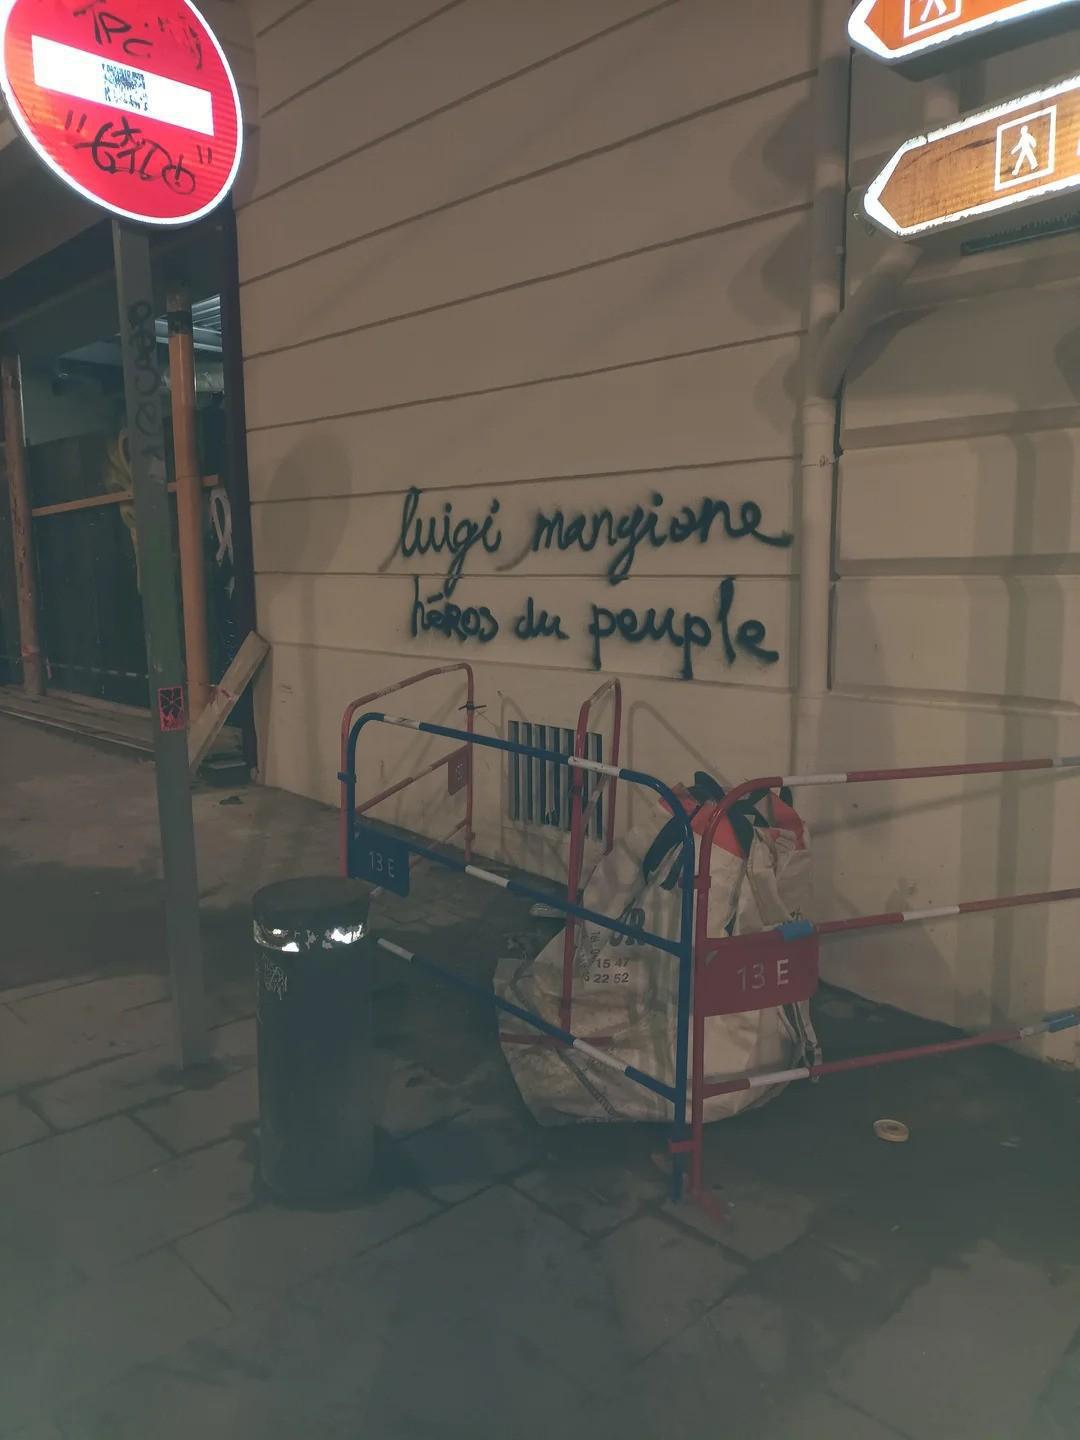 TPC
luigi mangione
héros du peuple
13 E
15 47
22 52
13 E